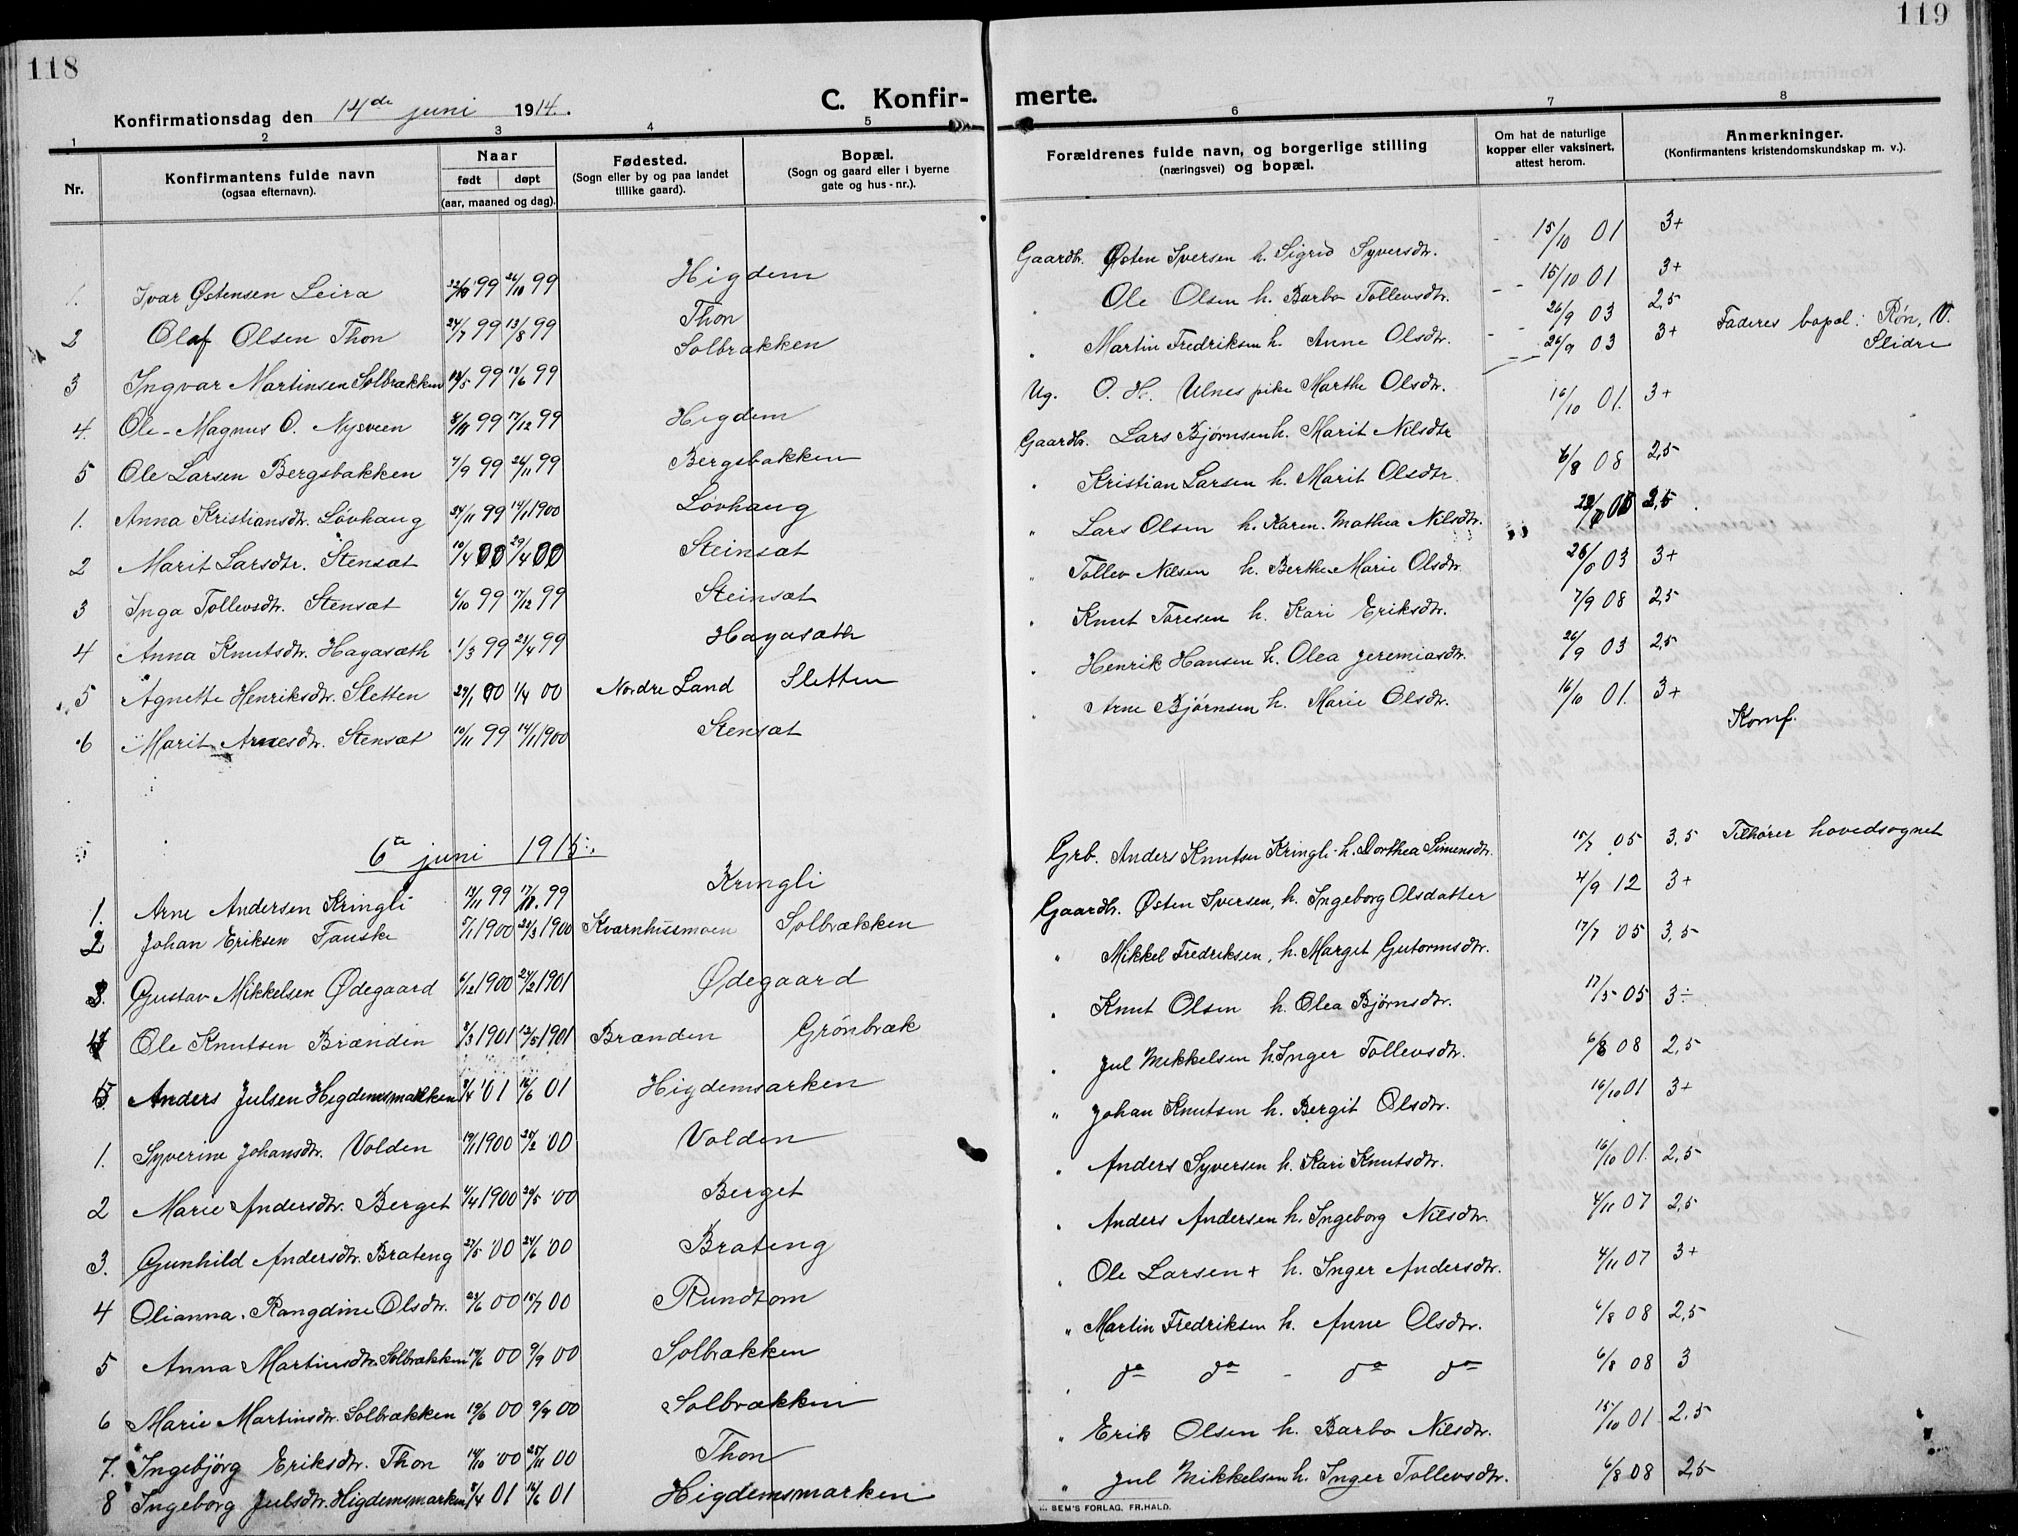 118
119
Konfirmationsdag den 14de juni 1914.
C. Konfir-
merte.
1 2 3 4 5 6 7 8
Nr.
Konfirmantens fulde navn
(ogsaa efternavn).
Naar
født døpt
(aar, maaned og dag).
Fødested.
(Sogn eller by og paa landet
tillike gaard).
Bopæl.
(Sogn og gaard eller i byerne
gate og hus-nr.).
Forældrenes fulde navn, og borgerlige stilling
(næringsvei) og bopæl.
Om hat de naturlige
kopper eller vaksinert,
attest herom.
Anmerkninger.
(Konfirmantens kristendomskundskap m. v.).
1. Ivar Østensen Leira 99 26/10 99 Higdem Gaardbr. Østen Iversen h. Sigrid Syversdtr. 15/10 01 3+
2 Olaf Olsen Thon 24/7 99 13/8 99 Thon " Ole Olsen h. Barbo Tollevsdtr. 15/10 01 3+
3 Ingvar Martinsen Solbrækken 14/5 99 18/6 99 Solbrækken " Martin Fredriksen h. Anne Olsdtr. 26/9 03 2,5
4. Ole-Magnus O. Nysveen 8/11 99 17/12 99 Higdem Ug. O. H. Ulnes pike Marthe Olsdtr. 26/9 03 3+ Faderes bopæl: Røn, V. Slidre
5 Ole Larsen Bergsbakken 7/9 99 26/11 99 Bergsbakken Gaardbr. Lars Bjørnsen h. Marit Nilsdtr 16/10 01. 3+
1. Anna Kristiansdtr. Løvhaug 24/11 99 14/1 1900 Løvhaug " Kristian Larsen h. Marit Olsdtr. 6/8 08 2,5
2 Marit Larsdtr. Stensæt 10/4 00 29/4 00 Steinsæt " Lars Olsen h. Karen. Mathea Nilsdtr. 2,5
3 Inga Tollevsdtr. Stensæt 6/10 99 17/12 99 Steinsæt " Tollev Nilsen h. Berthe Marie Olsdtr. 03 3+
4 Anna Knutsdtr. Hagasæth 1/3 99 23/4 99 Hagasæth " Knut Toresen h. Kari Eriksdtr. 7/9 08 2,5
5 Agnethe Henriksdtr. Sletten 29/1 00 1/4 00 Nordre Land Sletten " Henrik Hansen h. Olea Jeremiasdtr. 26/9 03 2,5
6 Marit Arnesdtr. Stensæt 10/11 99 14/1 1900 Stensæt " Arne Bjørnsen h. Marie Olsdtr. 16/10 01. 3+ Komf.
6te juni 1915.
1. Arne Andersen Kringli 19/11 99 99 Kringli Grb. Anders Knutsen Kringli h. Dorthea Simensdtr. 15/7 05 3,5 Tilhører hovedsognet
2 Johan Eriksen Fauske 5/1 1900 25/3 1900 Kvarnhusmoen Solbrækken Gaardbr. Østen Iversen, h. Ingeborg Olsdatter 4/9 12 3+
3. Gustav Mikkelsen Ødegaard 6/12 1900 24/2 1901 Ødegaard " Mikkel Fredriksen, h. Marget Gutormsdtr. 17/7 05 3,5
4 Ole Knutsen Brænden 8/3 1901 12/5 1901 Brænden Grønbræk " Knut Olsen h. Olea Bjørnsdtr. 17/5 05 3÷
5 Anders Julsen Higdemsmarken 8/4 '01 16/6 01 Higdemsarken " Jul Mikkelsen h. Inger Tollevsdtr. 6/8 08 2,5
1. Syverine Johansdtr. Volden 19/1 1900 25/2 '00 Volden " Johan Knutsen h. Bergit Olsdtr. 16/10 01 3+
2 Marie Andersdtr. Berget 4/4 1900 20/5 '00 Berget " Anders Syversen h. Kari Knutsdtr. 16/10 01 2,5
3. Gunhild Andersdtr. Brateng 27/5 '00 24/6 '00 Brateng " Anders Andersen h. Ingeborg Nilsdtr. 4/11 07 2,5
4 Olianna. Rangdine Olsdtr. 23/6 00 15/7 00 Rundtom " Ole Larsen + h. Inger Andersdtr. 4/11 07 3+
5 Anna Martinsdtr. Solbrækken 19/6 00 9/9 00 Solbrækken " Martin Fredriksen h. Anne Olsdtr. 6/8 08 2,5
6 Marie Martinsdtr. Solbrækken 19/6 00 9/9 00 Solbrækken " do do - do do 6/8 08 3
7. Ingebjørg Eriksdtr. Thon 14/10 '00 25/11 00 Thon " Erik Olsen h. Barbo Nilsdtr. 15/10 01 2,5
8 Ingeborg Julsdtr. Higdemsmarken 8/4 01 16/6 01 Higdemsmarken " Jul Mikkelsen h. Inger Tollevsdtr. 6/8 08 2,5
SEM'S FORLAG, FR.HALD.